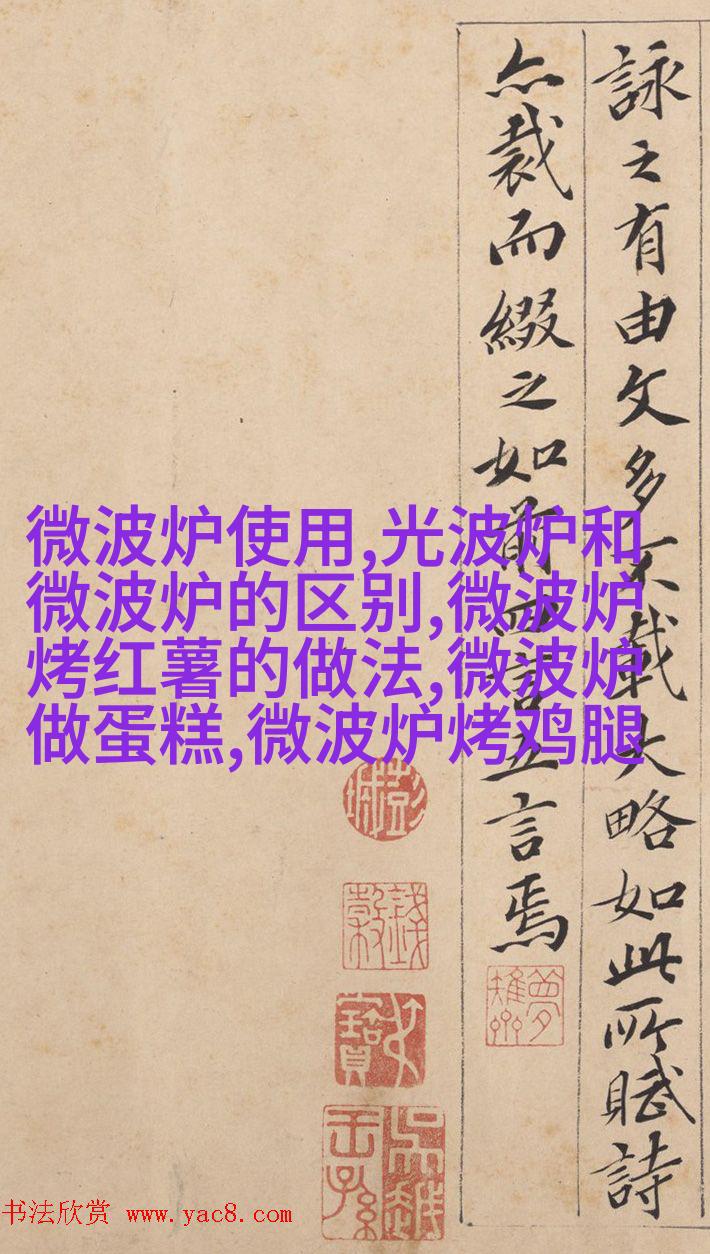 詠之有由文多不載大略如此所賦詩
亦裁而綴之如前四言五言焉
微波炉使用,光波炉和
微波炉的区别,微波炉
烤红薯的做法,微波炉
做蛋糕,微波炉烤鸡腿
书法欣赏 www.yac8.com